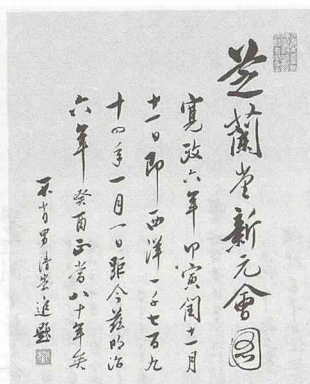 芝蘭堂新元會圖
寛政六年甲寅閏十一月
十一日即西洋一千七百九
十四年一月一日距今茲明治
六年癸酉正當八十年矣
不肖男清崇追題